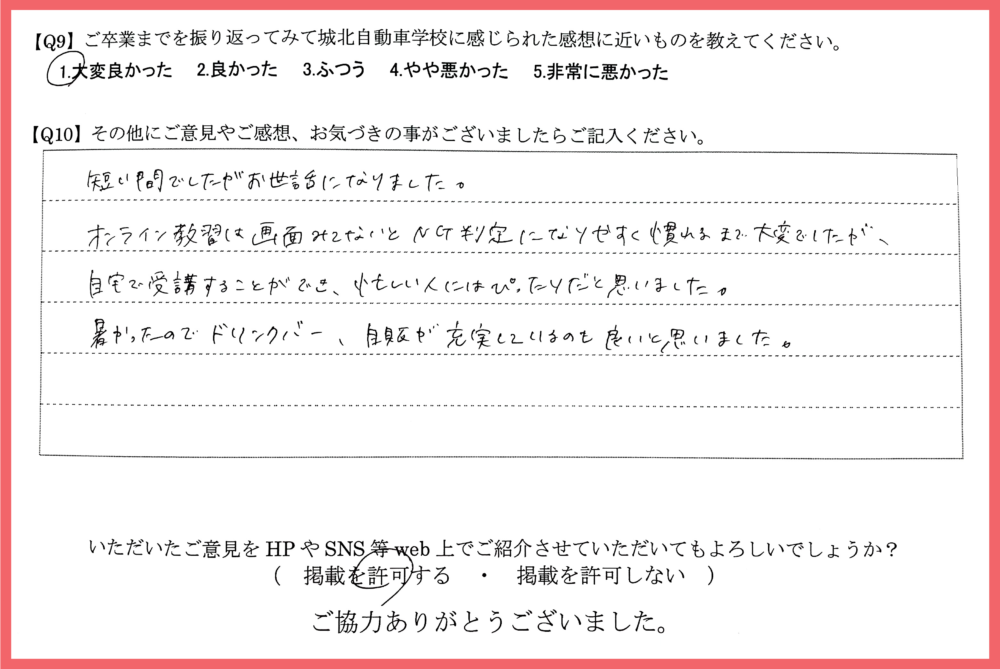 【Q9】ご卒業までを振り返ってみて城北自動車学校に感じられた感想に近いものを教えてください。
1.大変良かった 2.良かった 3.ふつう 4.やや悪かった 5.非常に悪かった
【Q10】その他にご意見やご感想、お気づきの事がございましたらご記入ください。
短い間でしたがお世話になりました。
オンライン教習は画面みてないとNG判定になりやすく慣れるまで大変でしたが、
自宅で受講することができ、忙しい人にはぴったりだと思いました。
暑かったのでドリンクバー、自販が充実しているのも良いと思いました。
いただいたご意見をHPやSNS等web上でご紹介させていただいてもよろしいでしょうか?
( 掲載を許可する ・ 掲載を許可しない )
ご協力ありがとうございました。